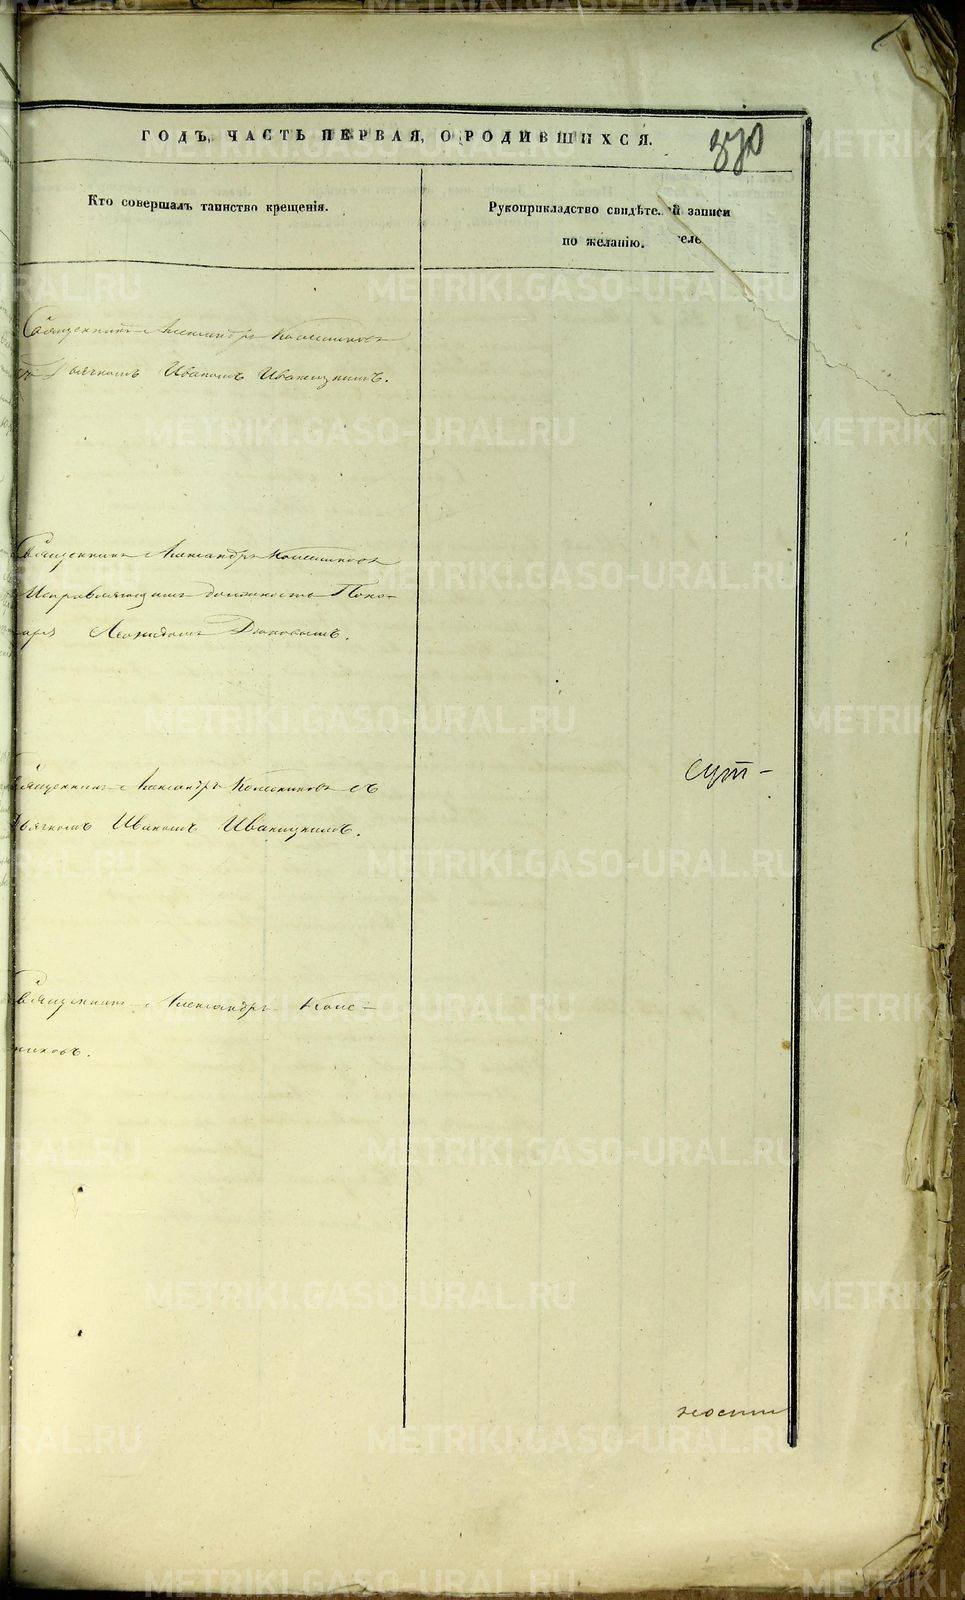 ГОДЪ, ЧАСТЬ ПЕРВАЯ, О РОДИВШИХСЯ.
370
Кто совершалъ таинство крещенія.
Рукоприкладство свидѣте й записи
по желанію. теле
Священникъ Александръ Колесниковъ
съ Дьячкомъ Иваномъ Иваницкимъ.
Священникъ Александръ Колесниковъ
Исправляющимъ должность Поно-
маря Леонидомъ
Священникъ Александръ Колесниковъ съ
Дьячкомъ Иваномъ Иваницкимъ.
сут-
Священникъ Александръ Колес-
никовъ.
ности
METRIKI.GASO-URAL.RU